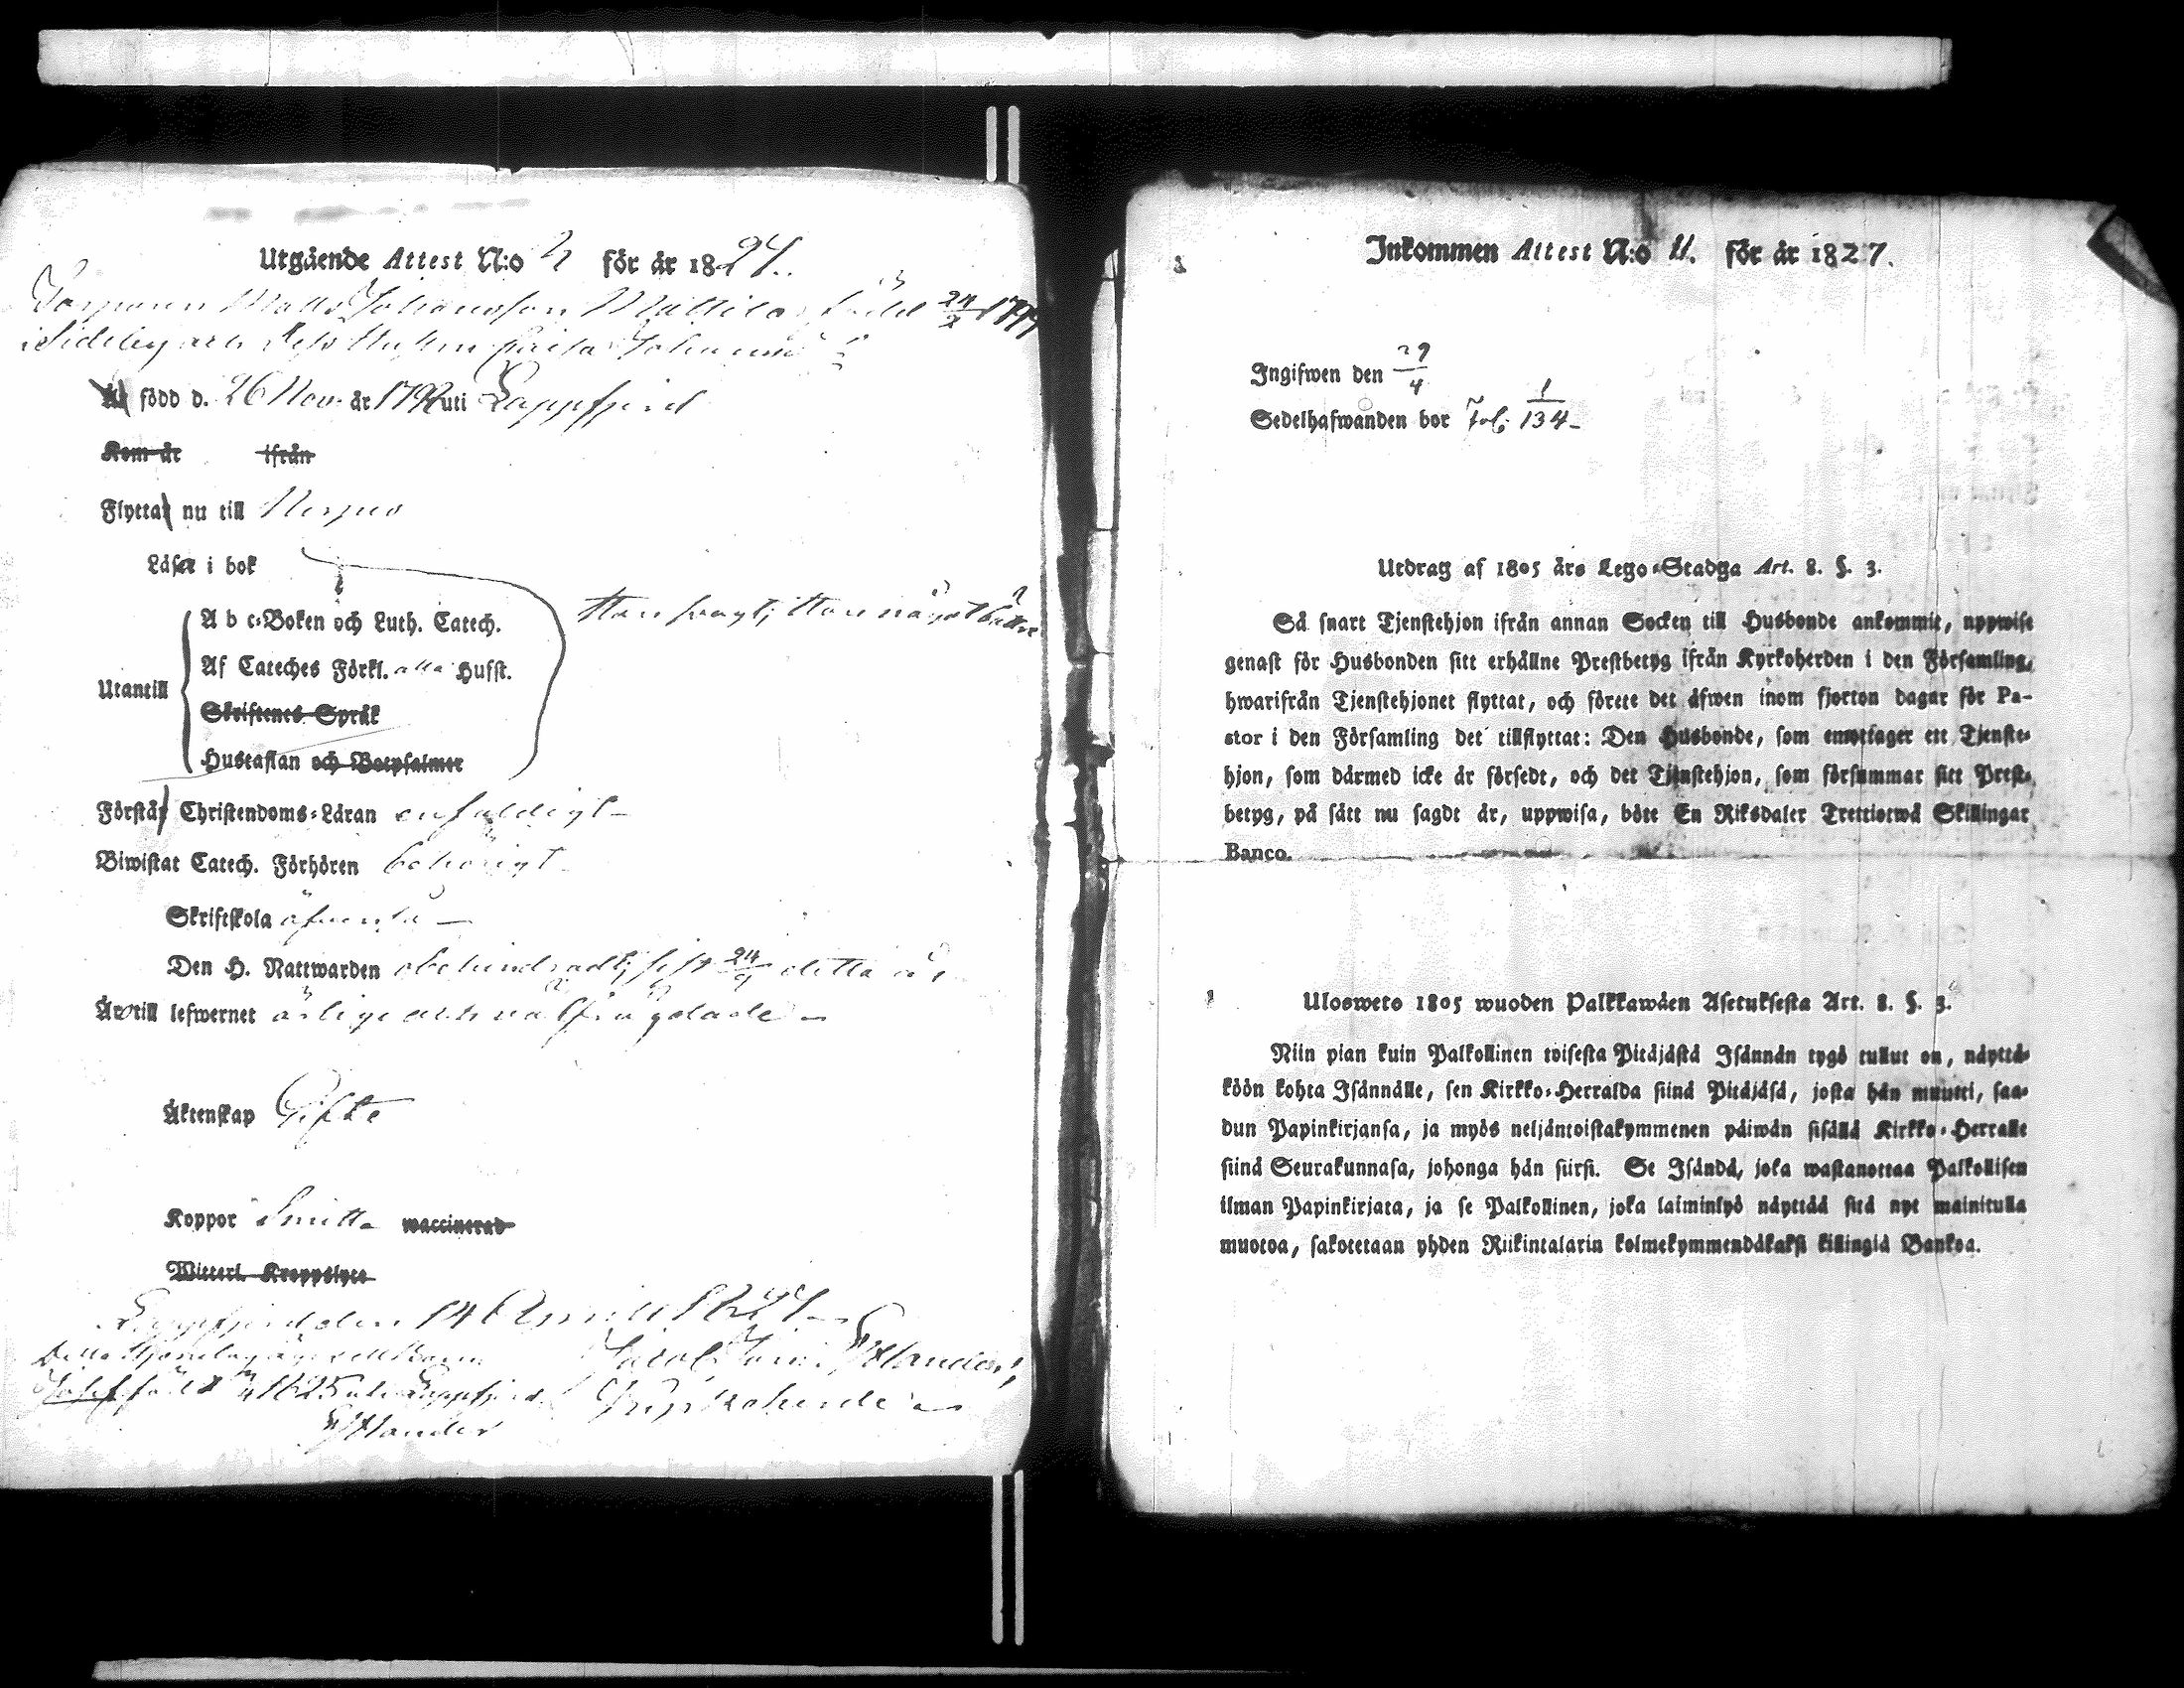 Utgående Attest N:o 2 för år 1827.
Matts Johansson Mattila, född 24/2 1799
i Sideby och Hustrun Caisa
född d. 26 Nov. år 1792 uti Lappfjerd
Kom år ifrån
Flytta nu till Nerpes
Läsa i bok
A b c-Boken och Luth. Catech. Han svagt, Hon något bättre
Af Cateches Förkl. alla Hufst.
Utantill
Skriftenes Språk
Hustaflan och Botpsalmer
Förstå Christendoms-Läran enfaldigt
Biwistat Catech. Förhören behörigt
Skriftskola äfvenså
Den H. Nattwarden obehindradt, sist 24/9 detta år
Äro till lefwernet ärlige och välfrägdade
Äktenskap Gifte
Koppor Smitta waccinerad
Witterl. Kroppslyte
Lappfjerd den 14 April 1827
Detta Hjonelag
Jacob
född 1825 uti Lappfjerd Kyrkoherde
Inkommen Attest N:o 11. för år 1827.
Ingifwen den 29/4
Sedelhafwanden bor Fol. 1/134
Utdrag af 1805 års Lego-Stadga Art. 8. §. 3.
Så snart Tjenstehjon ifrån annan Socken till Husbonde ankommit, uppwise
genast för Husbonden sitt erhållne Prestbetyg ifrån Kyrkoherden i den Församling,
hwarifrån Tjenstehjonet flyttat, och förete det äfwen inom fjorton dagar för Pa-
stor i den Församling det tillflyttat: Den Husbonde, som emottager ett Tjenste-
hjon, som därmed icke är försedt, och det Tjenstehjon, som försummar sitt Prest-
betyg, på sätt nu sagdt är, uppwisa, böte En Riksdaler Trettiotwå Skillingar
Banco.
Ulosweto 1805 wuoden Palkkawäen Asetuksesta Art. 8. §. 3.
Niin pian kuin Palkollinen toisesta Pitäjästä Isännän tygö tullut on, näyttä-
köön kohta Isännälle, sen Kirkko-Herralda siinä Pitäjäsä, josta hän muutti, saa-
dun Papinkirjansa, ja myös neljäntoistakymmenen päiwän sisällä Kirkko-Herralle
siinä Seurakunnasa, johonga hän siirsi. Se Isändä, joka wastanottaa Palkollisen
ilman Papinkirjata, ja se Palkollinen, joka laiminlyö näyttää sitä nyt mainitulla
muotoa, sakotetaan yhden Riikintalarin kolmekymmendäkaksi killingiä Bankoa.